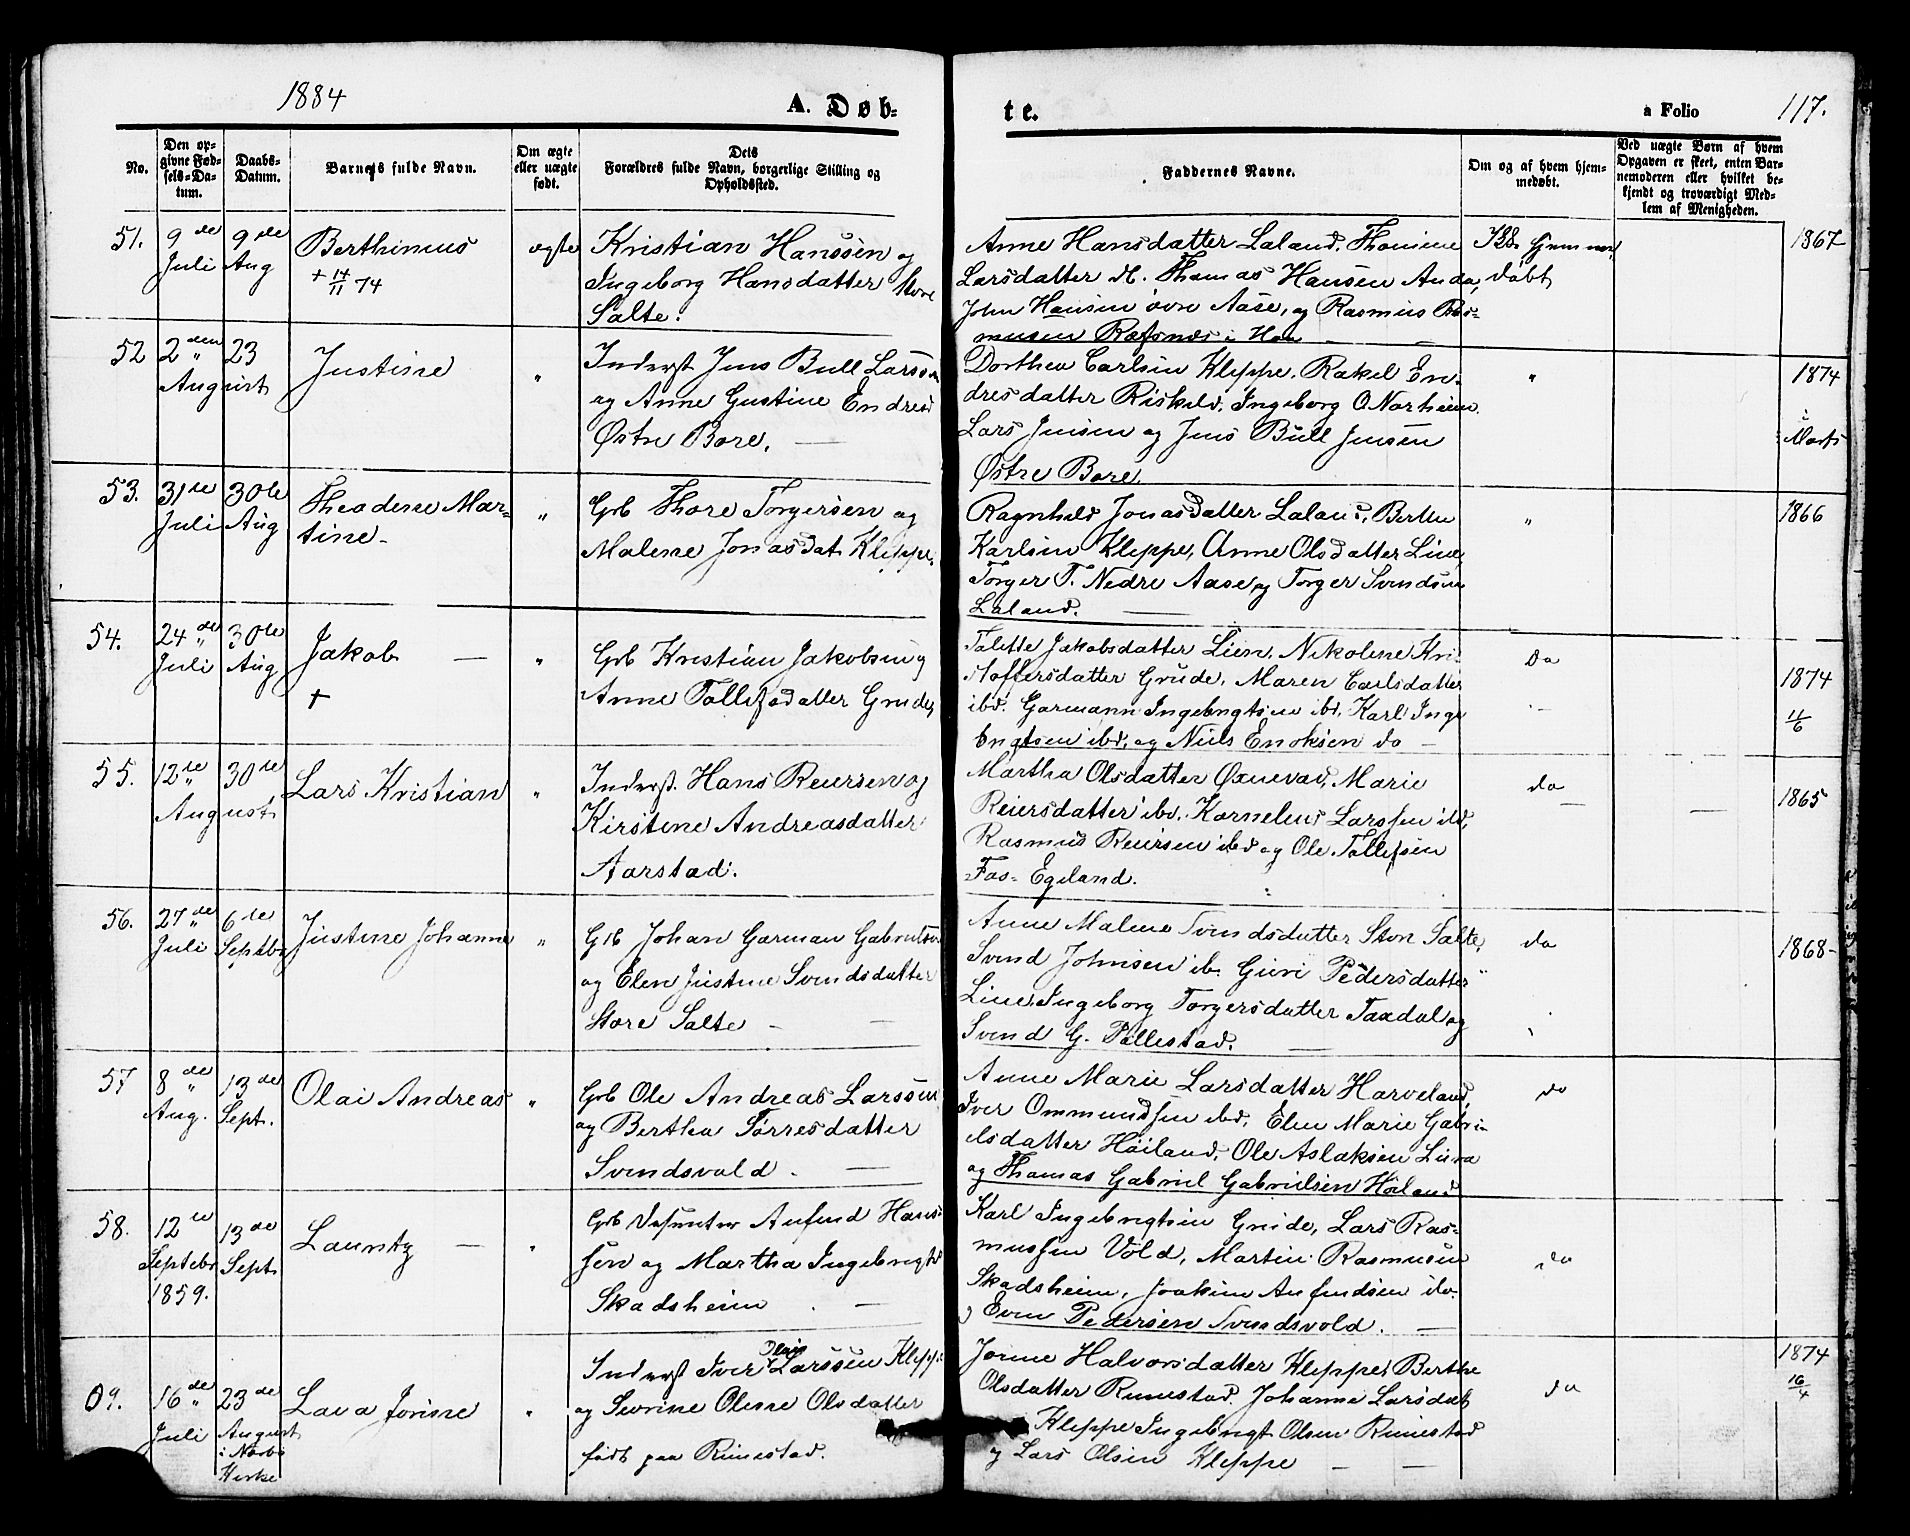 1884
A. Døb-
te.
a Folio
117.
No.
Den op-
givne Fød-
sels-Da-
tum.
Daabs-
Datum.
Barnets fulde Navn.
Om ægte
eller uægte
født.
Dets
Forældres fulde Navn, borgerlige Stilling og
Opholdssted.
Faddernes Navne.
Om og af hvem hjem-
medøbt.
Ved uægte Børn af hvem
Opgaven er skeet, enten Bar-
nemoderen eller hvilket be-
kjendt og troværdigt Med-
lem af Menigheden.
51.
9de
Juli
9de
Aug
Berthinius
+ 14/11 74
ægte
Kristian Hanssen og
Ingeborg Hansdatter Store
Salte.
Anne Hansdatter Laland. Thomine
Larsdatter st. Thomas Hansen Anda,
John Hansen øvre Aase, og Rasmus Ras-
mussen Ræfsnæs i Haa
Ikke hjemme
døbt
1867
52
2den
August
23
Justine
"
Inderst Jens Bull Larssen
og Anne Gustine Endresd
Østre Bore.
Dorthea Carlsen Kleppe. Rakel En-
dresdatter Riskeld. Ingeborg O Norheim
Lars Jensen og Jens Bull Jensen
Østre Bore
"
1874
i
Marts
53.
31te
Juli
30te
Aug
Theodene Mar-
tine
"
Grb Thore Torgersen og
Malene Jonasdat Kleppe.
Ragnhild Jonasdatter Laland, Berthe
Karlsen Kleppe, Anne Olsdatter Line,
Torger T. Nedre Aase og Torger Svendsen
Laland.
"
1866
54.
24de
Juli
30te
Aug
Jakob
+
"
Grb Kristian Jakobsen og
Anne Tollefsdatter Grude,
Talette Jakobsdatter Lien. Nikoline Kri-
stoffersdatter Grude, Maren Carlsdatter
ibd. Garmann Ingebrigtsen ibd, Karl Inge
brigtsen ibd, og Niels Enoksen do
Do
1874
11/6
55.
12te
August
30te
Lars Kristian
"
Inderst. Hans Reiersen og
Kirstine Andreasdatter
Aarstad.
Martha Olsdatter Øxnevad, Marie
Reiersdatter ibd. Kornelius Larssen ibd,
Rasmus Reiersen ibd og Ole Tollefsen
Fos-Egeland.
do
1865
56.
27de
Juli
6te
Septbr
Justine Johanne
"
Grb Johan Garman Gabrielsen
og Elen Justine Svendsdatter
Store Salte
Anne Malene Svendsdatter Store Salte,
Svend Johnsen ib. Guri Pedersdatter
Line, Ingeborg Torgersdatter Taxdal og
Svend G. Pollestad.
do
1868-
57
8de
Aug.
13de
Sept.
Olai Andreas
"
Grb Ole Andreas Larssen
og Bertha Torresdatter
Svendsvold.
Anne Marie Larsdatter Harveland,
Iver Ommundsen ibd, Elen Marie Gabri-
elsdatter Høiland, Ole Aslaksen Lura
og Thomas Gabriel Gabrielsen Høiland
do
58.
12te
Septebr
1859.
13de
Sept
Lauritz
"
Grb Defunter Aufind Hans-
sen og Martha Ingebrigtsd
Skadsheim
Karl Ingebrigtsen Grude, Lars Ras-
mussen Vold, Martin Rasmussen
Skadsheim, Joakim Aufindsen do.
Even Pedersen Svendsvold.
do
09.
16de
Juli
23de
August
i Norbø
Kirke
Lava Jorine
"
Inderst Iver Olais Larssen Kleppe
og Severine Olene Olsdatter
født paa Rimestad.
Jorine Halvorsdatter Kleppe, Berthe
Olsdatter Rimestad. Johanne Larsdat
Kleppe Ingebrigt Olsen Rimestad
og Lars Olsen Kleppe
do
1874
16/4